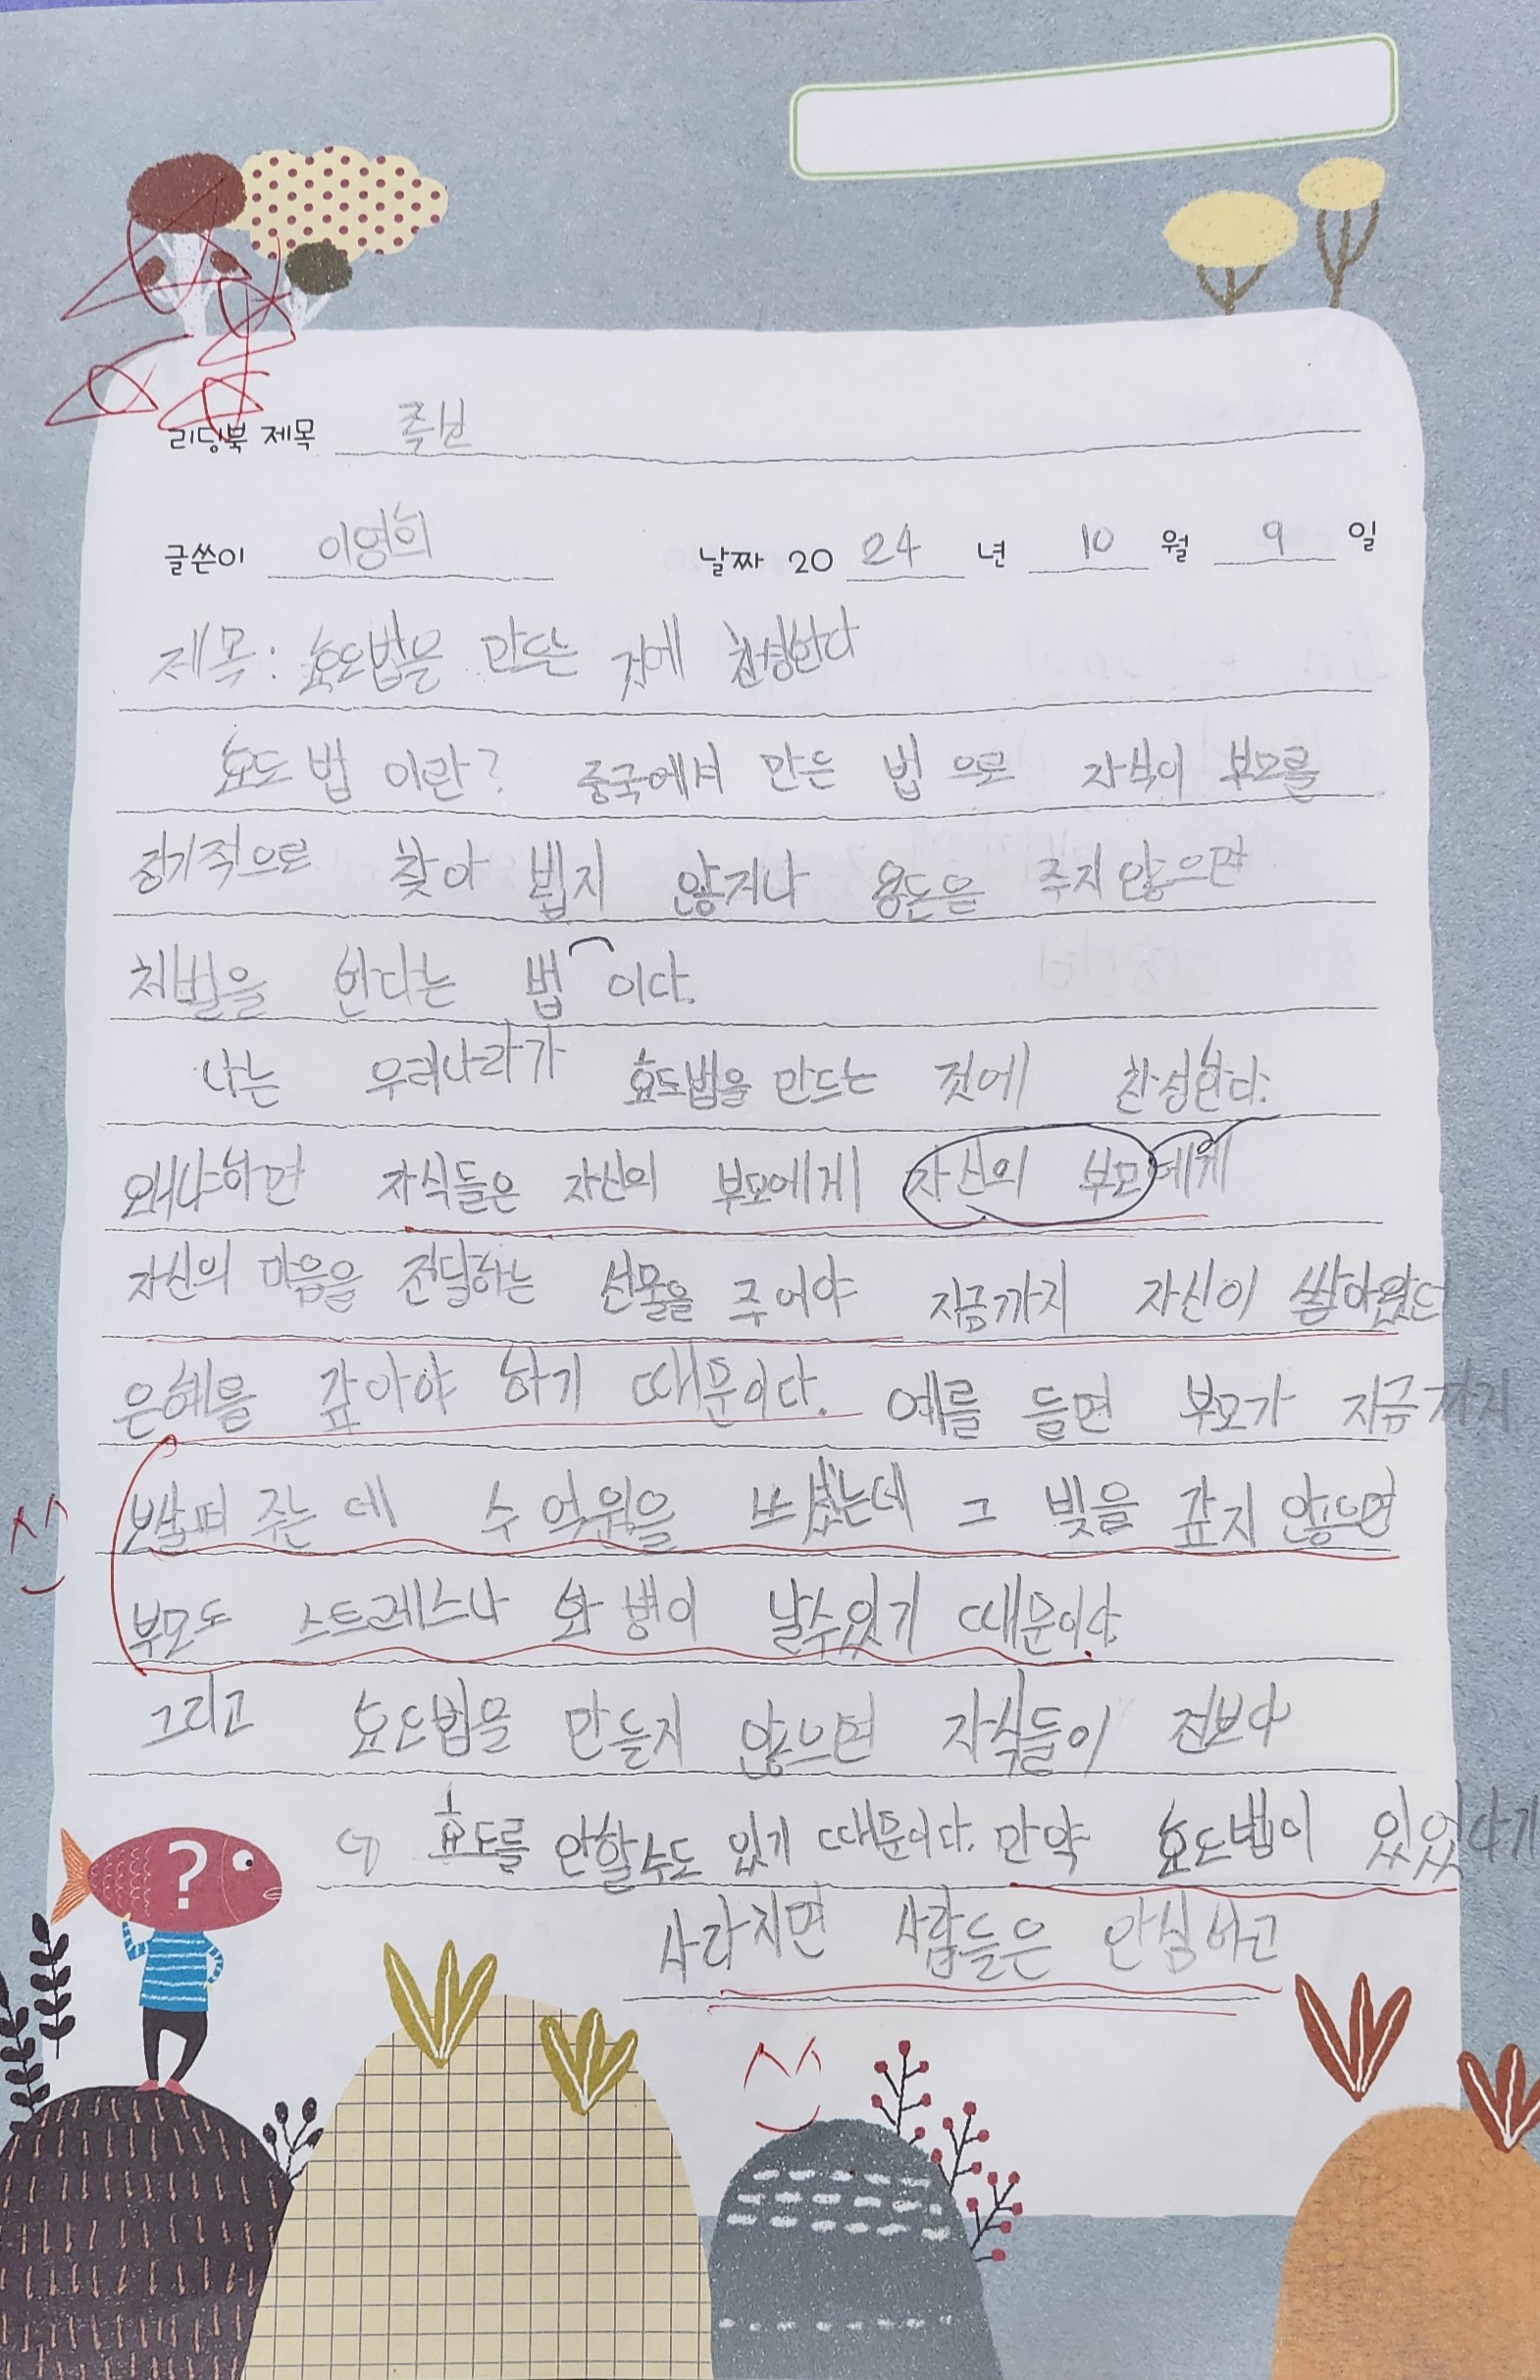 리딩북 제목 족보
글쓴이 이영희 날짜 20 24 년 10 월 9 일
제목: 효도법을 만드는 것에 찬성한다
효도 법 이란? 중국에서 만든 법 으로 자식이 부모를
정기적으로 찾아 뵙지 않거나 용돈을 주지 않으면
처벌을 한다는 법 이다.
나는 우리나라가 효도법을 만드는 것에 찬성한다.
왜냐하면 자식들은 자신의 부모에게 자신의 부모에게
자신의 마음을 전달하는 선물을 주어야 지금까지 자신이 쌓아왔던
은혜를 갚아야 하기 때문이다. 예를 들면 부모가 지금까지
주는 데 수 억원을 쓰셨는데 그 빚을 갚지 않으면
부모도 스트레스나 화 병이 날수있기 때문이다.
그리고 효도법을 만들지 않으면 자식들이 전보다
효도를 안할수도 있기 때문이다. 만약 효도법이 있었다가
사라지면 사람들은 안심하고
?